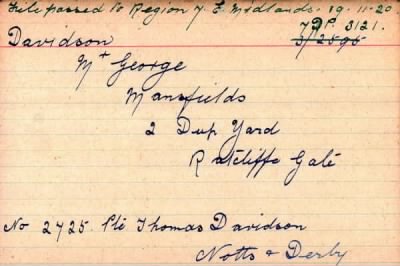 File passed to Region 7. E Midlands. 19.11.20.
7DP. 3121.
Davidson 3/2595
Mr George
Mansfields
2 Dup Yard
Ratcliffe Gate
No 2725. Pte Thomas Davidson
Notts & Derby